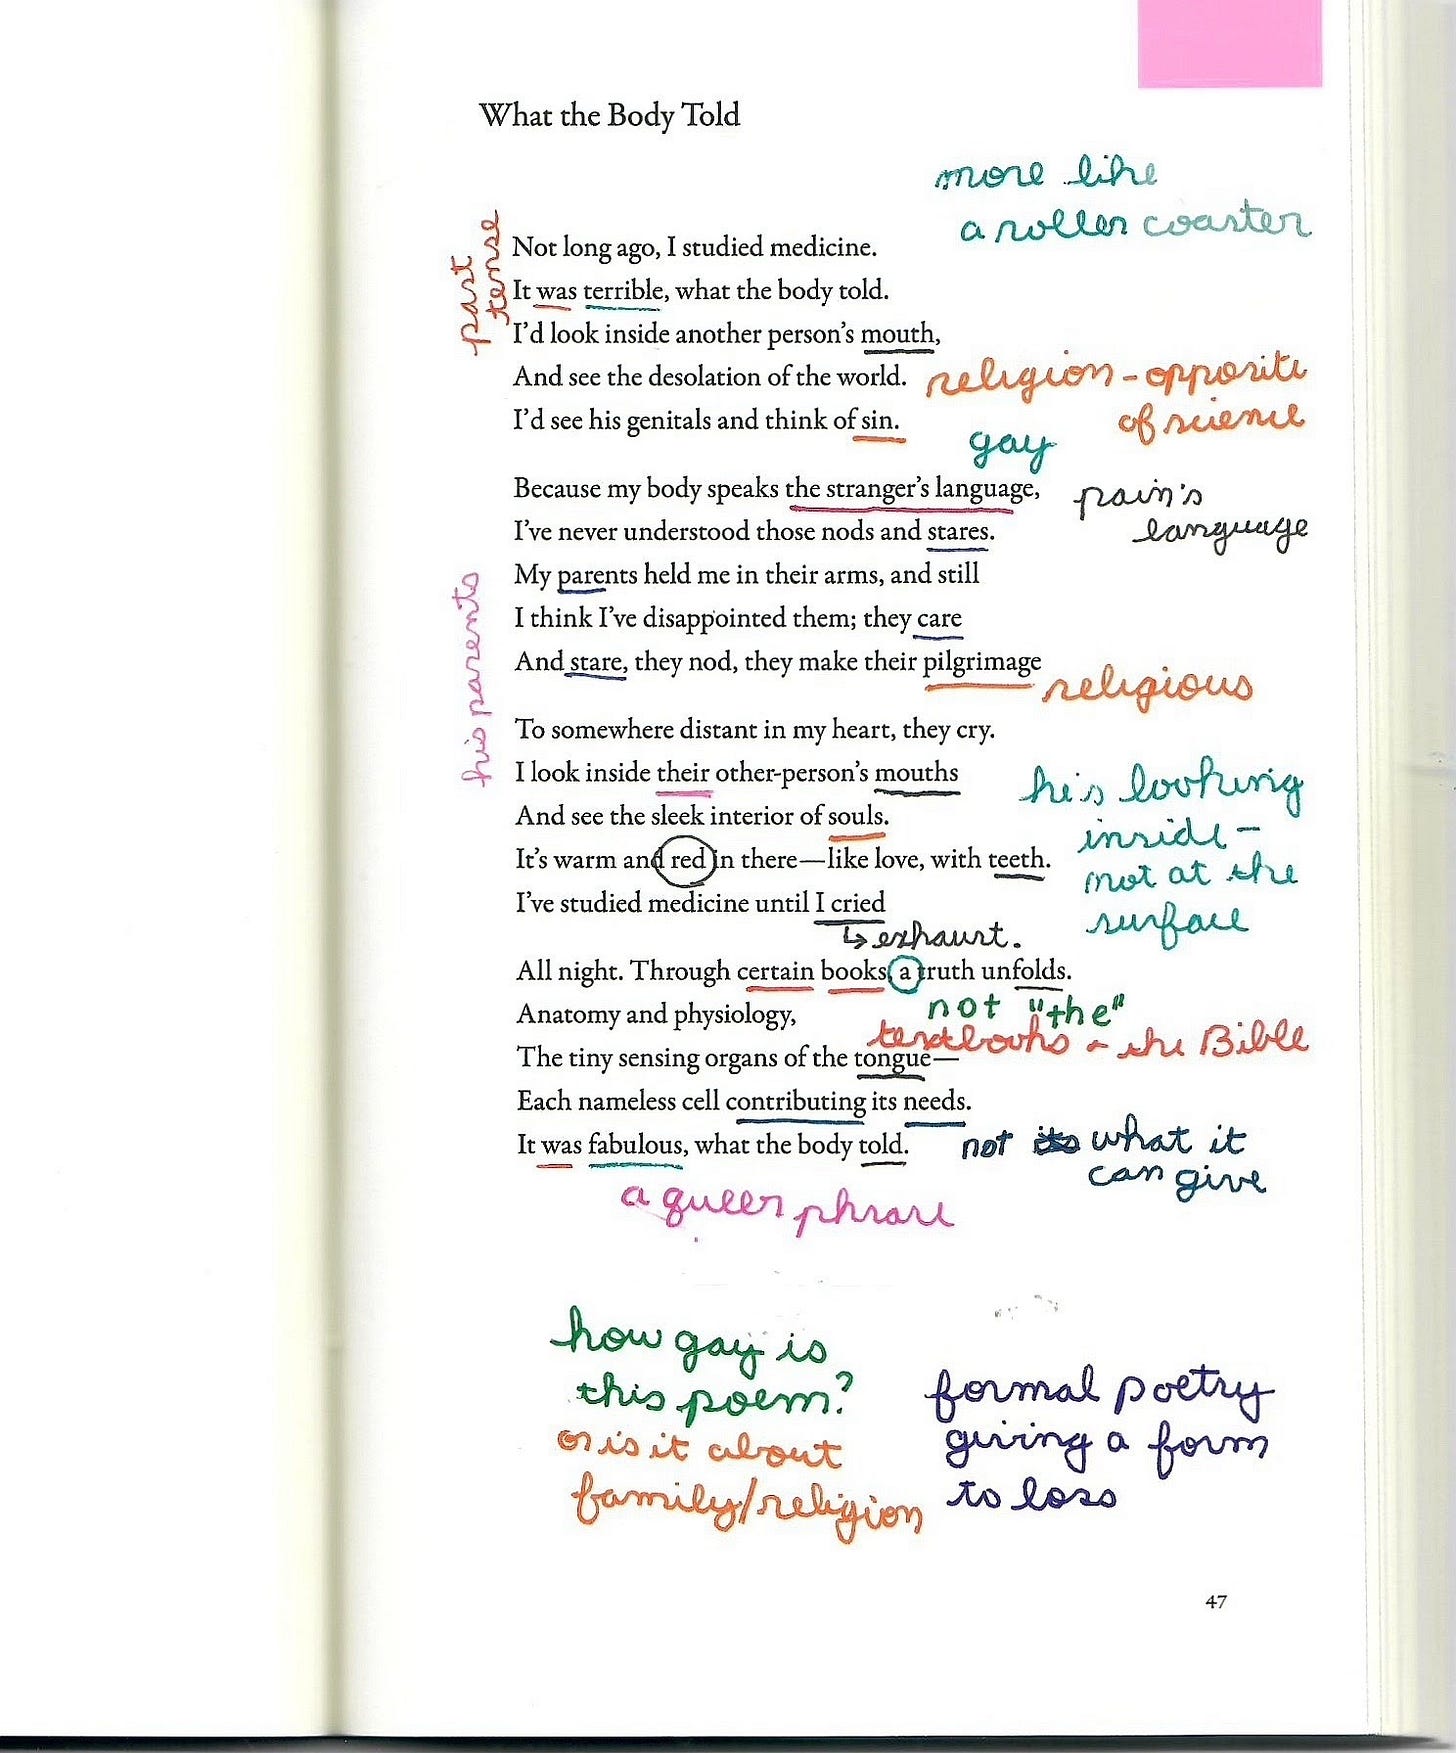 What the Body Told
more like
a roller coaster
past
tense
Not long ago, I studied medicine.
It was terrible, what the body told.
I'd look inside another person's mouth,
And see the desolation of the world.
religion - opposite
of science
I'd see his genitals and think of sin.
gay
Because my body speaks the stranger's language,
pain's
language
I've never understood those nods and stares.
My parents held me in their arms, and still
his parents
I think I've disappointed them; they care
And stare, they nod, they make their pilgrimage
religious
To somewhere distant in my heart, they cry.
I look inside their other-person's mouths
he's looking
inside -
not at the
surface
And see the sleek interior of souls.
It's warm and red in there—like love, with teeth.
I've studied medicine until I cried
↳ exhaust.
All night. Through certain books, a truth unfolds.
not "the"
Anatomy and physiology,
textbooks - the Bible
The tiny sensing organs of the tongue—
Each nameless cell contributing its needs.
It was fabulous, what the body told.
not what it
can give
a queer phrase
how gay is
this poem?
or is it about
family/religion
formal poetry
giving a form
to loss
47